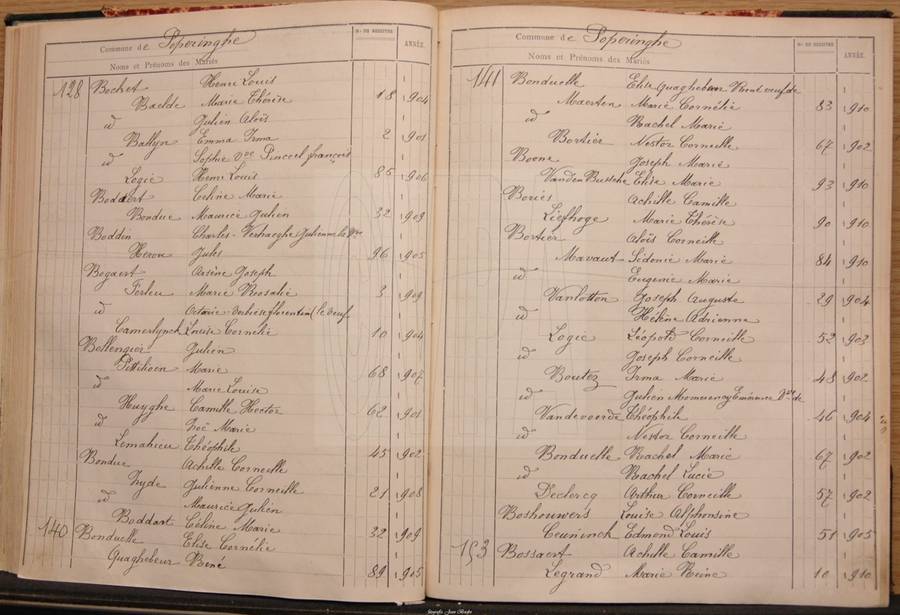 Commune de Poperinghe
Noms et Prénoms des Mariés
Nos DE REGISTRE
ANNÉE
128 Bochet Henri Louis
Baelde Marie Thérèse 18 1904
id Julien Aloïs
Ballyn Emma Irma 2 1901
id Sophie Vve Pinceel françois
Logie Henri Louis 85 1906
Boddart Celine Marie
Bonduc Maurice Julien 32 1909
Boddin Charles - Verhaeghe Julienne le Vve
Heron Jules 96 1905
Bogaert Arsène Joseph
Ferleu Marie Rosalie 3 1909
id Octavie le veuf
Camerlynck Louise Cornélie 10 1904
Bollengier Julien
Pittilioen Marie 68 1907
id Marie Louise
Huyghe Camille Hector 62 1901
id Zoé Marie
Lemahieu Théophile 45 1902
Bonduc Achille Corneille
Tryde Julienne Corneille 21 1908
id Maurice Julien
Boddart Céline Marie 32 1909
140 Bonduelle Elise Cornélie
Quaghebeur René 89 1905
Commune de Poperinghe
Noms et Prénoms des Mariés
Nos DE REGISTRE
ANNÉE
141 Bonduelle Elise Quaghebeur René veuf de
Maerten Marie Cornélie 83 1910
id Rachel Marie
Bortier Nestor Corneille 67 1902
Boone Joseph Marie
Vanden Bussche Elise Marie 93 1910
Boriés Achille Camille
Liefhoge Marie Thérèse 90 1910
Bortier Aloïs Corneille
Mavaut Sidonie Marie 84 1910
id Eugenie Marie
Vanlotton Joseph Auguste 29 1904
id Hélène Adrienne
Logie Léopold Corneille 52 1903
id Joseph Corneille
Boutez Irma Marie 48 1902
id Julien Vve de
Vandevoorde Théophile 46 1904
id Nestor Corneille
Bonduelle Rachel Marie 67 1902
id Rachel Lucie
Declercq Arthur Corneille 57 1902
Boshouwers Louise Alphonsine
Ceuninck Edmond Louis 51 1905
153 Bossaert Achille Camille
Legrand Marie Reine 10 1910